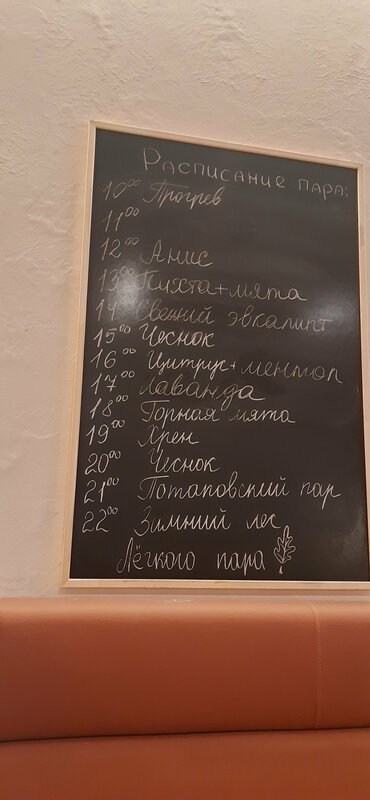 Расписание пара:
10⁰⁰ Прогрев
11⁰⁰
12⁰⁰ Анис
13⁰⁰ Пихта+мята
14⁰⁰ Свежий эвкалипт
15⁰⁰ Чеснок
16⁰⁰ Цитрус+ментол
17⁰⁰ Лаванда
18⁰⁰ Горная мята
19⁰⁰ Хрен
20⁰⁰ Чеснок
21⁰⁰ Потаповский пар
22⁰⁰ Зимний лес
Лёгкого пара